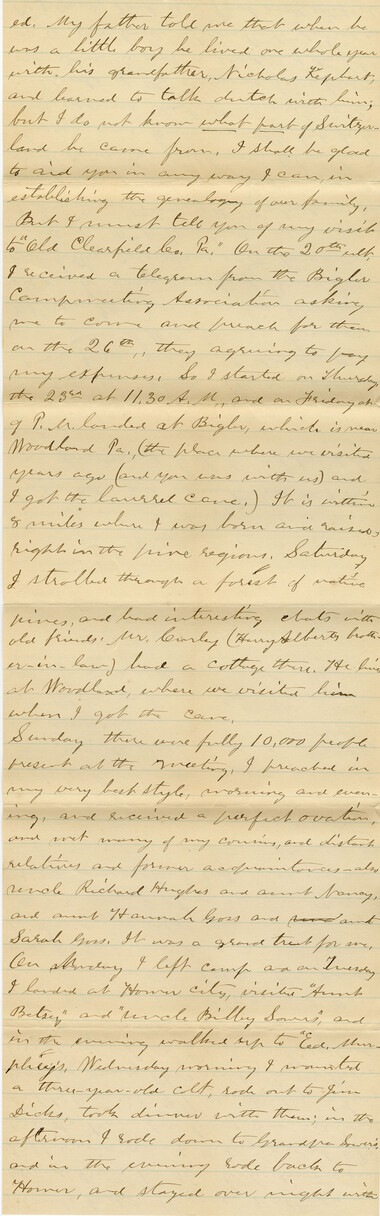 ed. My father told me that when he
was a little boy he lived one whole year
with his grandfather, Nicholas Kephart,
and learned to talk dutch with him;
but I do not know what part of Switzer-
land he came from. I shall be glad
to aid you in any way I can, in
establishing the genealogy of our family.
But I must tell you of my visit
to "Old Clearfield Co. Pa." On the 20th ult.
I received a telegram from the Bigler
Campmeeting Association asking
me to come and preach for them
on the 26th, they agreeing to pay
my expenses. So I started on Thursday
the 23rd at 11.30 A.M., and on Friday at
9 P.M. landed at Bigler, which is near
Woodland Pa., (the place where we visited
years ago (and you was with us) and
I got the laurrel cane.) It is within
8 miles where I was born and raised,
right in the pine regions. Saturday
I strolled through a forest of native
pines, and had interesting chats with
old friends. Mr. Curley (Henry Alberts broth-
er-in-law) had a cottage there. He lives
at Woodland, where we visited him
when I got the cane.
Sunday there were fully 10,000 people
present at the meeting. I preached in
my very best style, morning and even-
ing, and received a perfect ovation,
and met many of my cousins, and distant
relatives and former acquaintances - also
uncle Richard Hughes and aunt Nancy,
and aunt Hannah Goss and aunt
Sarah Goss. It was a grand treat for me.
On Monday I left camp and on Tuesday
I landed at Homer City, visited "Aunt
Betsey" and "uncle Billey Sowers", and
in the evening walked up to "Ed. Mur-
phey's. Wednesday morning I mounted
a three-year-old colt, rode out to Jim
Dicks, took dinner with them; in the
afternoon I rode down to Grandpa Sowers,
and in the evening rode back to
Homer, and stayed over night with